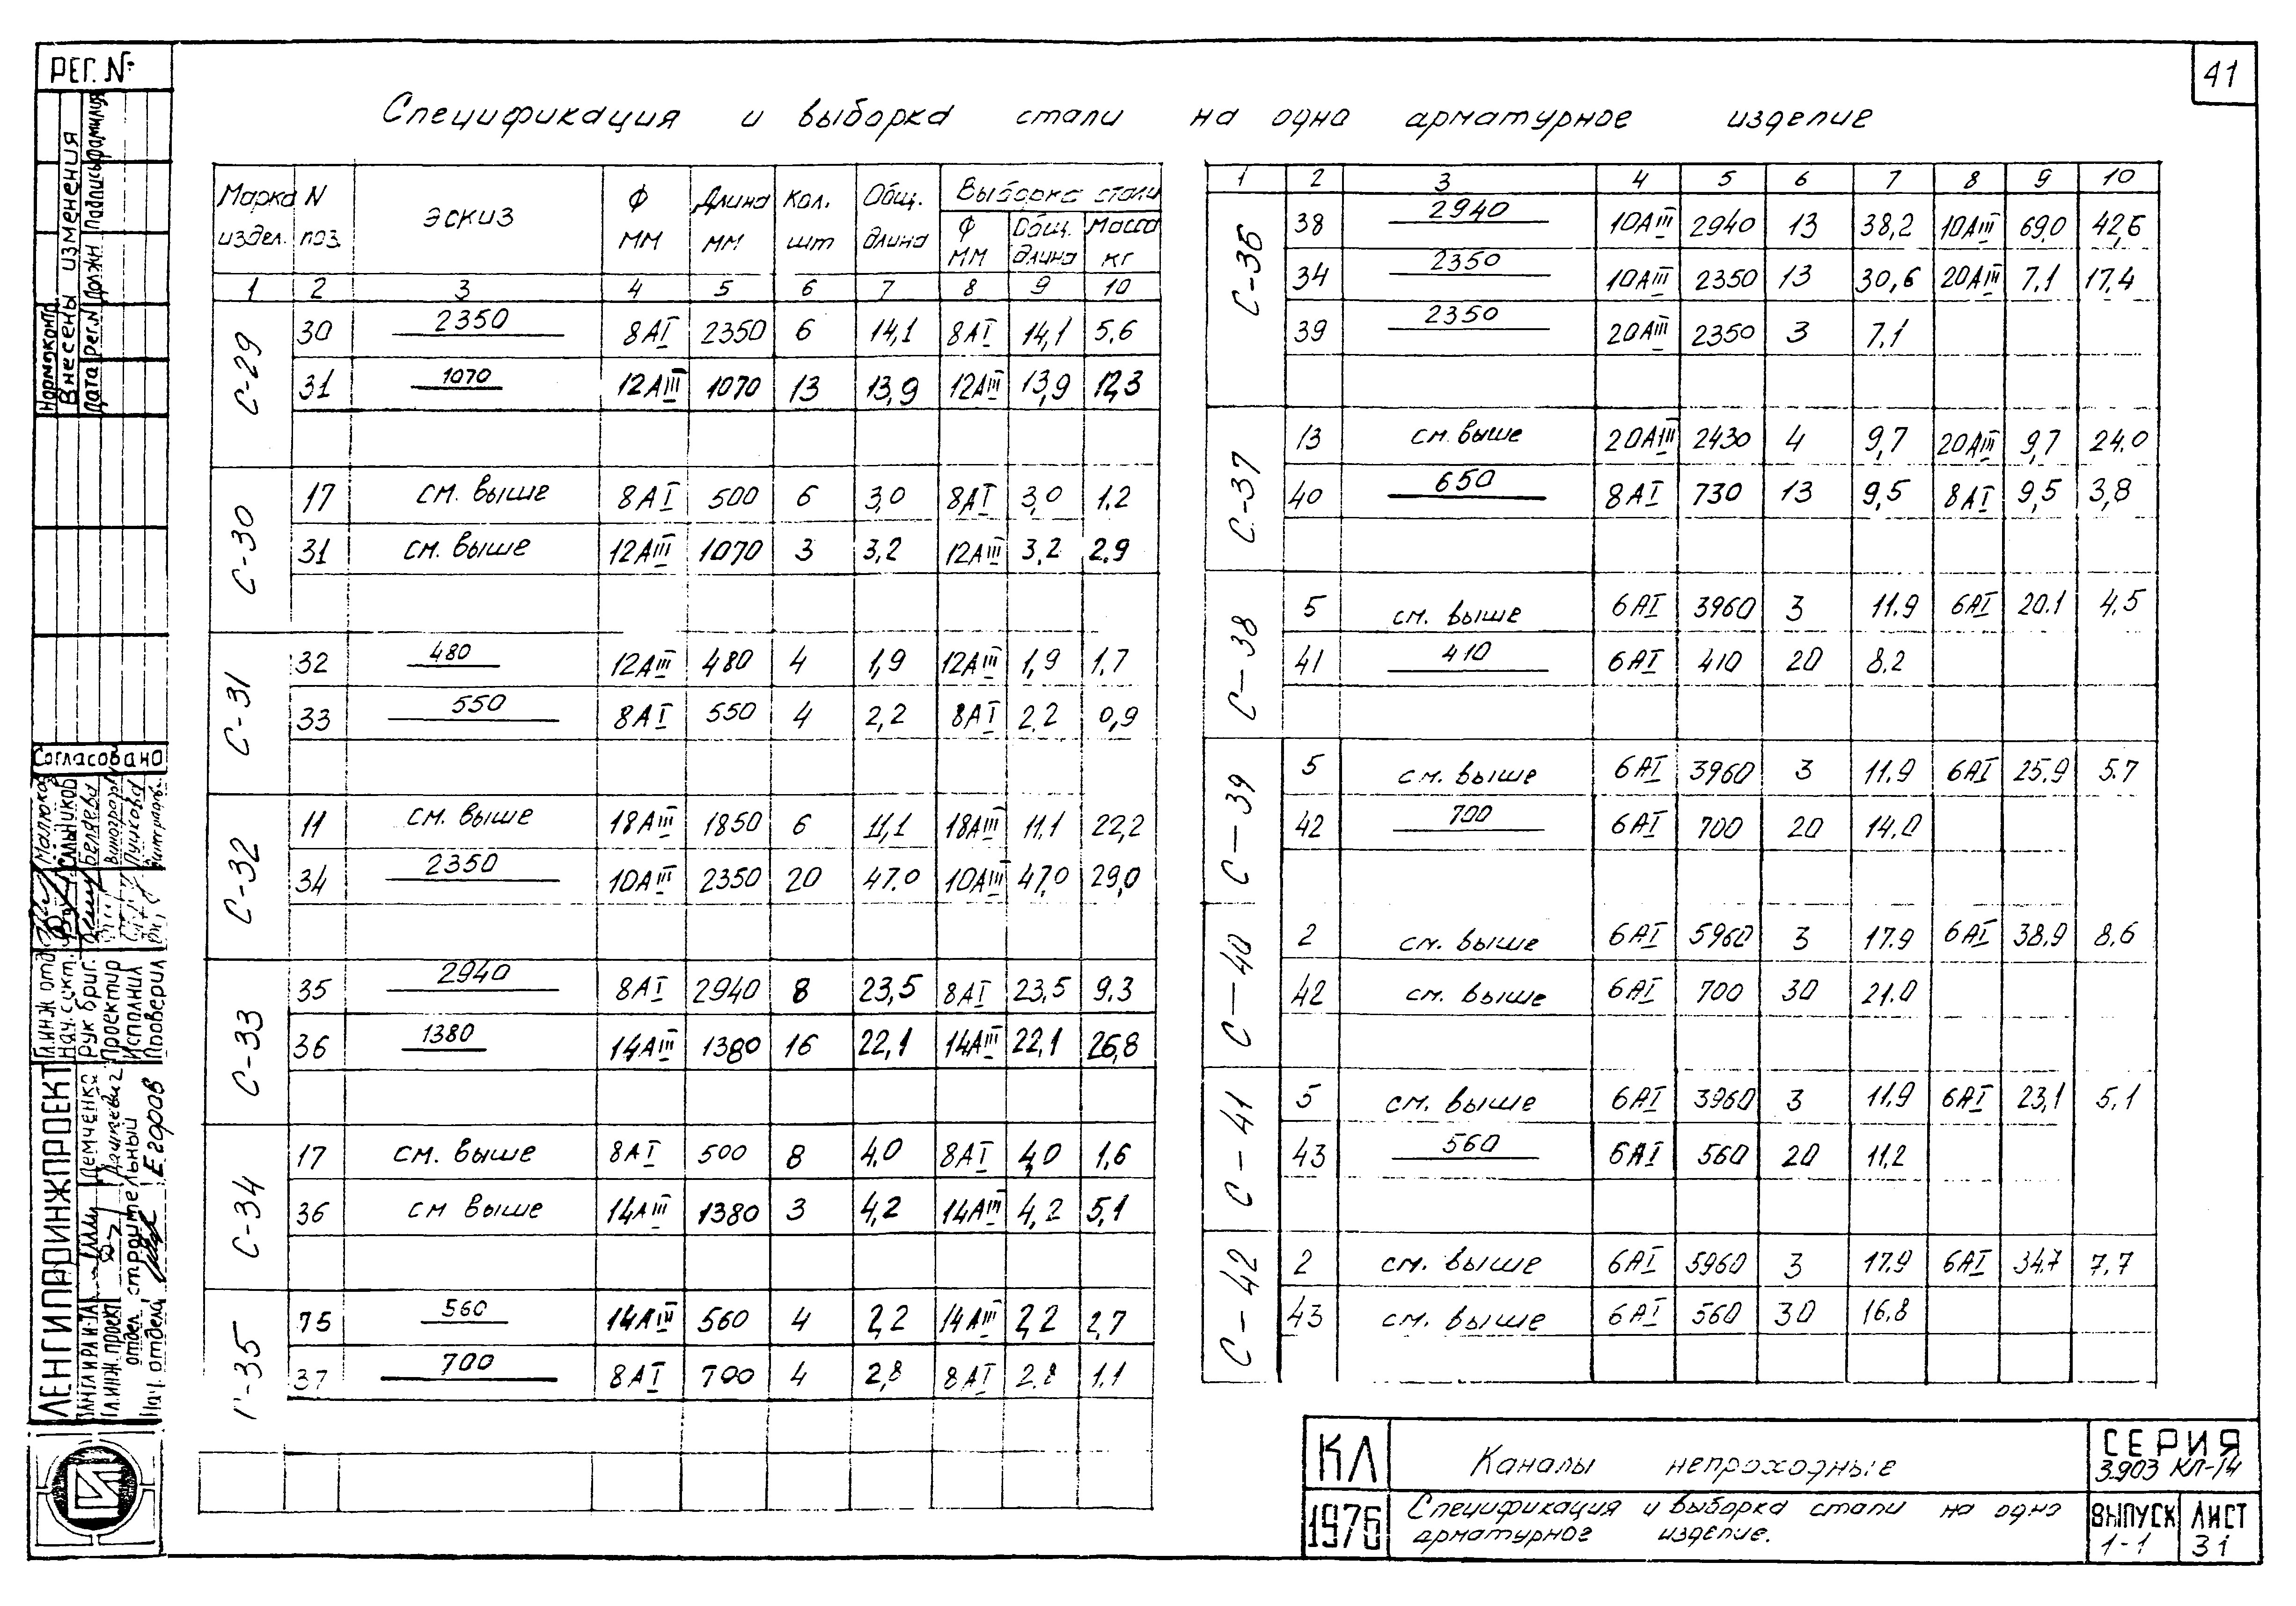 41
РЕГ. №
Спецификация и выборка стали на одно арматурное изделие
Марка издел. | N поз. | Эскиз | Ф мм | Длина мм | Кол. шт | Общ. длина | Выборка стали
Ф мм | Общ. длина | Масса кг
1 | 2 | 3 | 4 | 5 | 6 | 7 | 8 | 9 | 10
С-29 | 30 | 2350 | 8АI | 2350 | 6 | 14,1 | 8АI | 14,1 | 5.6
31 | 1070 | 12АIII | 1070 | 13 | 13,9 | 12АIII | 13,9 | 12,3
С-30 | 17 | см. выше | 8АI | 500 | 6 | 3,0 | 8АI | 3,0 | 1.2
31 | см. выше | 12АIII | 1070 | 3 | 3,2 | 12АIII | 3,2 | 2.9
С-31 | 32 | 480 | 12АIII | 480 | 4 | 1,9 | 12АIII | 1,9 | 1.7
33 | 550 | 8АI | 550 | 4 | 2,2 | 8АI | 2.2 | 0,9
С-32 | 11 | см. выше | 18АIII | 1850 | 6 | 11,1 | 18АIII | 11.1 | 22,2
34 | 2350 | 10АIII | 2350 | 20 | 47.0 | 10АIII | 47.0 | 29,0
С-33 | 35 | 2940 | 8АI | 2940 | 8 | 23,5 | 8АI | 23,5 | 9.3
36 | 1380 | 14АIII | 1380 | 16 | 22,1 | 14АIII | 22,1 | 26,8
С-34 | 17 | см. выше | 8АI | 500 | 8 | 4.0 | 8АI | 4,0 | 1,6
36 | см выше | 14АIII | 1380 | 3 | 4,2 | 14АIII | 4,2 | 5,1
С-35 | 75 | 560 | 14АIII | 560 | 4 | 2,2 | 14АIII | 2,2 | 2,7
37 | 700 | 8АI | 700 | 4 | 2,8 | 8АI | 2.8 | 1.1
1 | 2 | 3 | 4 | 5 | 6 | 7 | 8 | 9 | 10
С-36 | 38 | 2940 | 10АIII | 2940 | 13 | 38,2 | 10АIII | 69,0 | 42,6
34 | 2350 | 10АIII | 2350 | 13 | 30,6 | 20АIII | 7.1 | 17,4
39 | 2350 | 20АIII | 2350 | 3 | 7.1
С-37 | 13 | см. выше | 20АIII | 2430 | 4 | 9,7 | 20АIII | 9,7 | 24.0
40 | 650 | 8АI | 730 | 13 | 9,5 | 8АI | 9,5 | 3,8
С-38 | 5 | см. выше | 6АI | 3960 | 3 | 11.9 | 6АI | 20.1 | 4.5
41 | 410 | 6АI | 410 | 20 | 8.2
С-39 | 5 | см. выше | 6АI | 3960 | 3 | 11.9 | 6АI | 25.9 | 5.7
42 | 700 | 6АI | 700 | 20 | 14.0
С-40 | 2 | см. выше | 6АI | 5960 | 3 | 17.9 | 6АI | 38.9 | 8.6
42 | см. выше | 6АI | 700 | 30 | 21.0
С-41 | 5 | см. выше | 6АI | 3960 | 3 | 11.9 | 6АI | 23,1 | 5.1
43 | 560 | 6АI | 560 | 20 | 11,2
С-42 | 2 | см. выше | 6АI | 5960 | 3 | 17.9 | 6АI | 34.7 | 7.7
43 | см. выше | 6АI | 560 | 30 | 16.8
Нормоконтр.
Внесены изменения
Дата Рег.N Должн Подпись фамилия
Согласовано
Гл.инж отд. Малюков
Нач.сект. Сальников
Рук бриг. Беляева
Проектир
Исполнил Пучкова
Проверил
ЛЕНГИПРОИНЖПРОЕКТ
Демченко
Гл.инж. проект. Дашкевич
отдел строительный
Нач. отдела Егоров
КЛ
1976
Каналы непроходные
Спецификация и выборка стали на одно
арматурное изделие.
СЕРИЯ
3.903 КЛ-14
ВЫПУСК
1-1
ЛИСТ
31